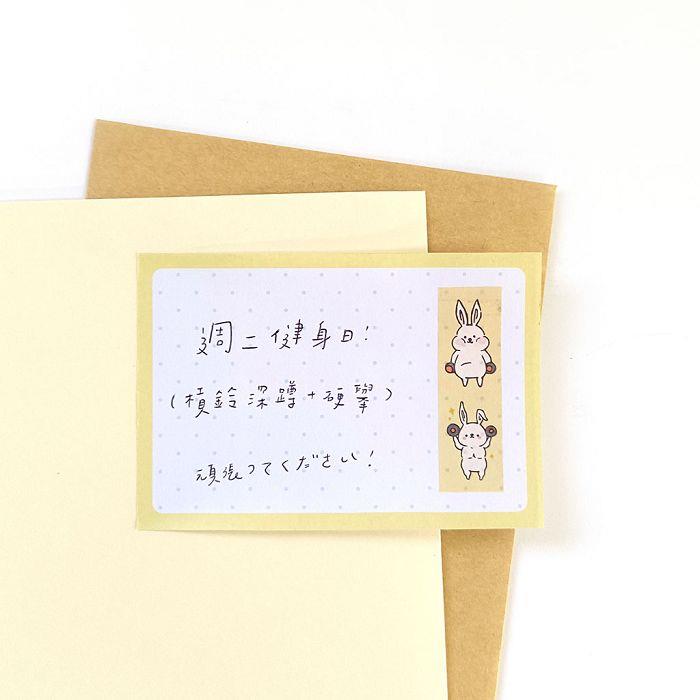 週二健身日!
(槓鈴深蹲+硬舉)
頑張ってください!